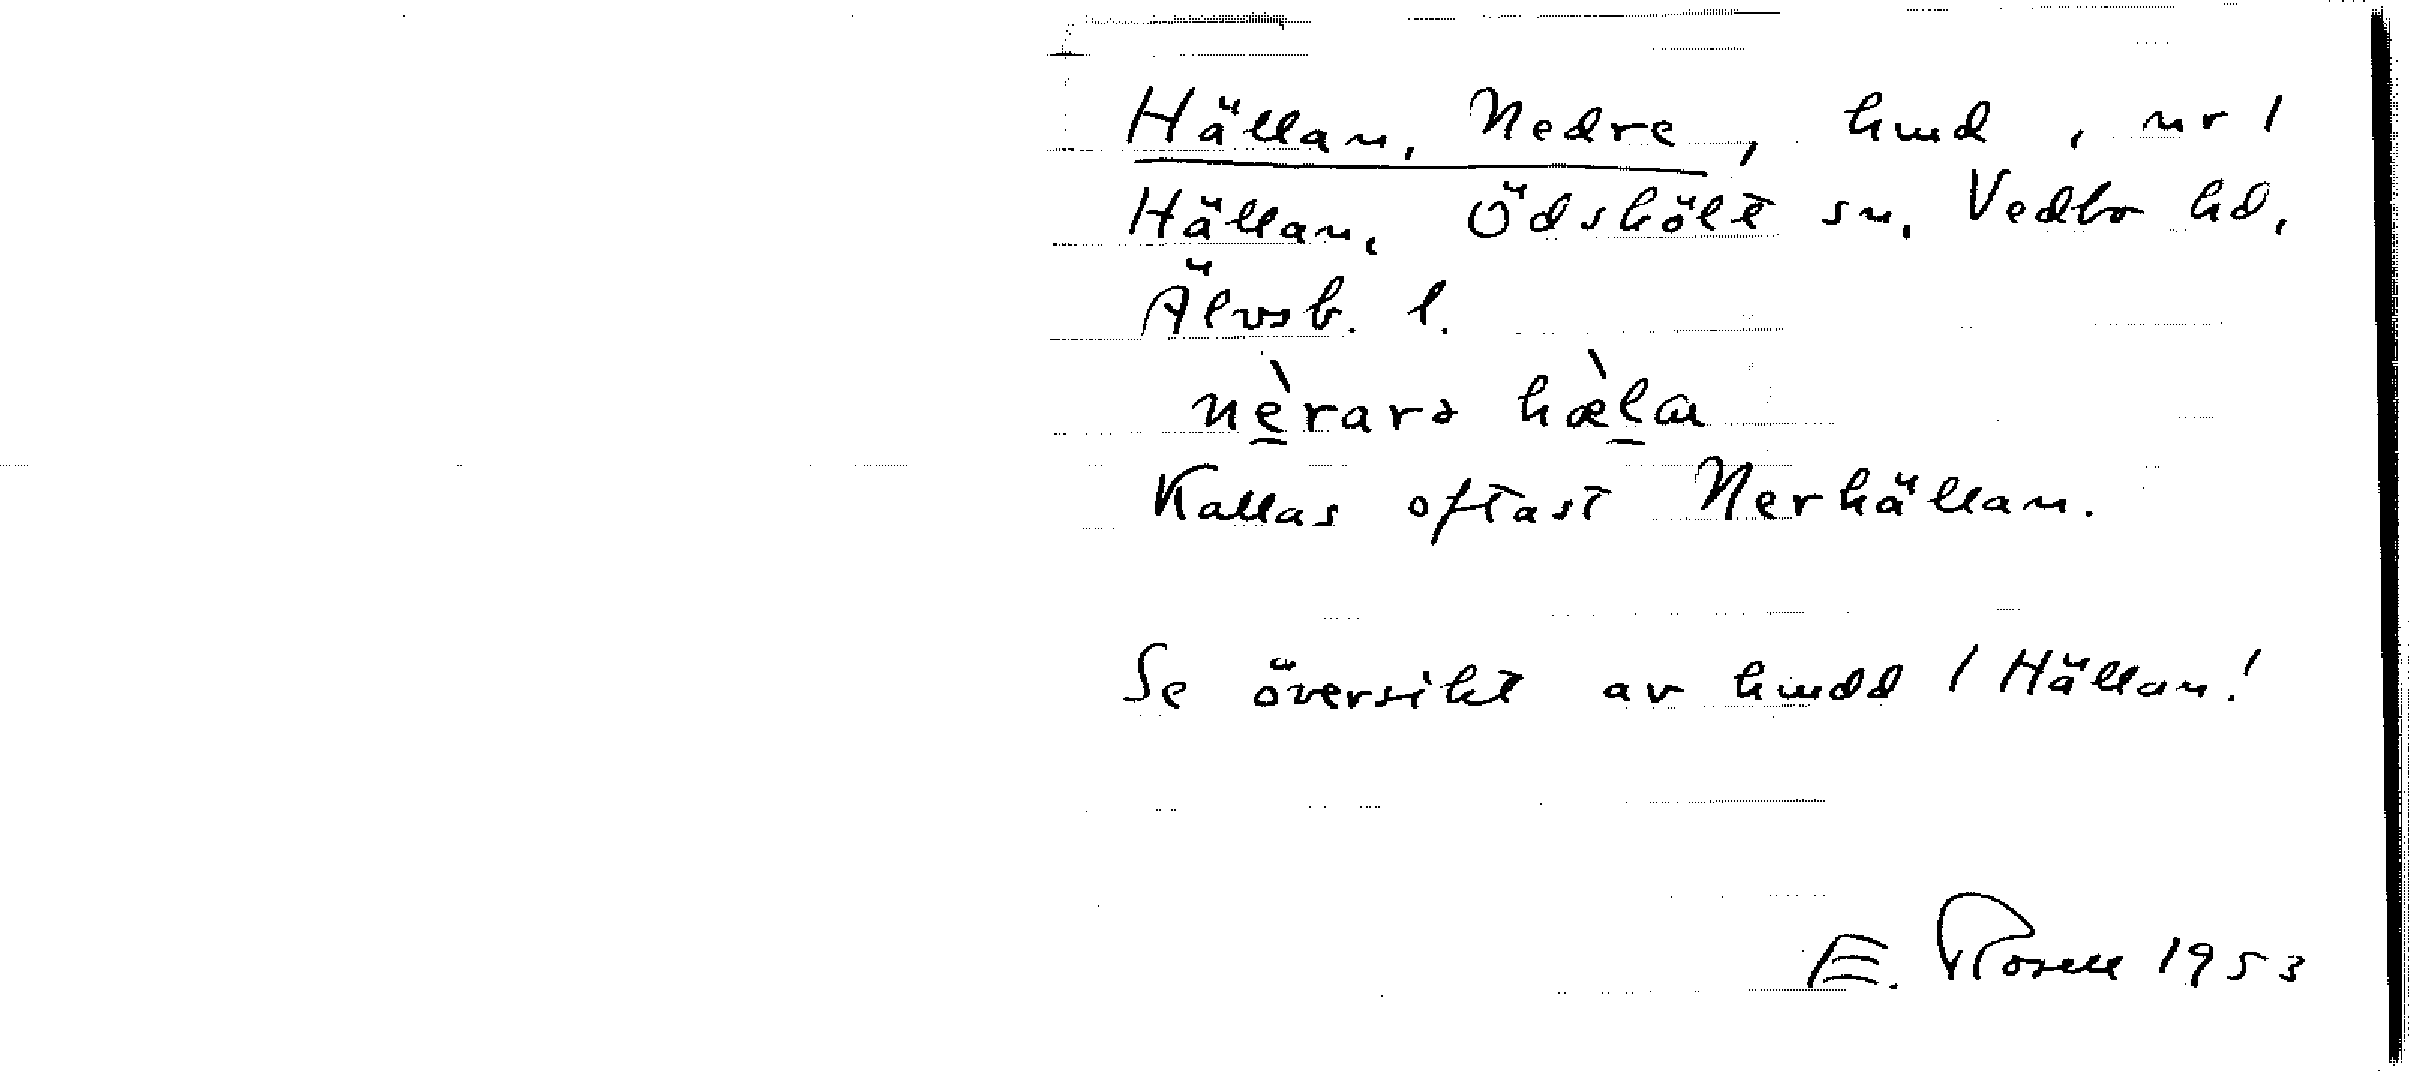 Hällan, Nedre, hmd, nr 1
Hällan, Ödskölt sn, Vedbo hd,
Älvsb. l.
nè̠rarə hæ̀l̠a
Kallas oftast Nerhällan.
Se översikt av hmdd 1 Hällan!
E. Rosell 1953